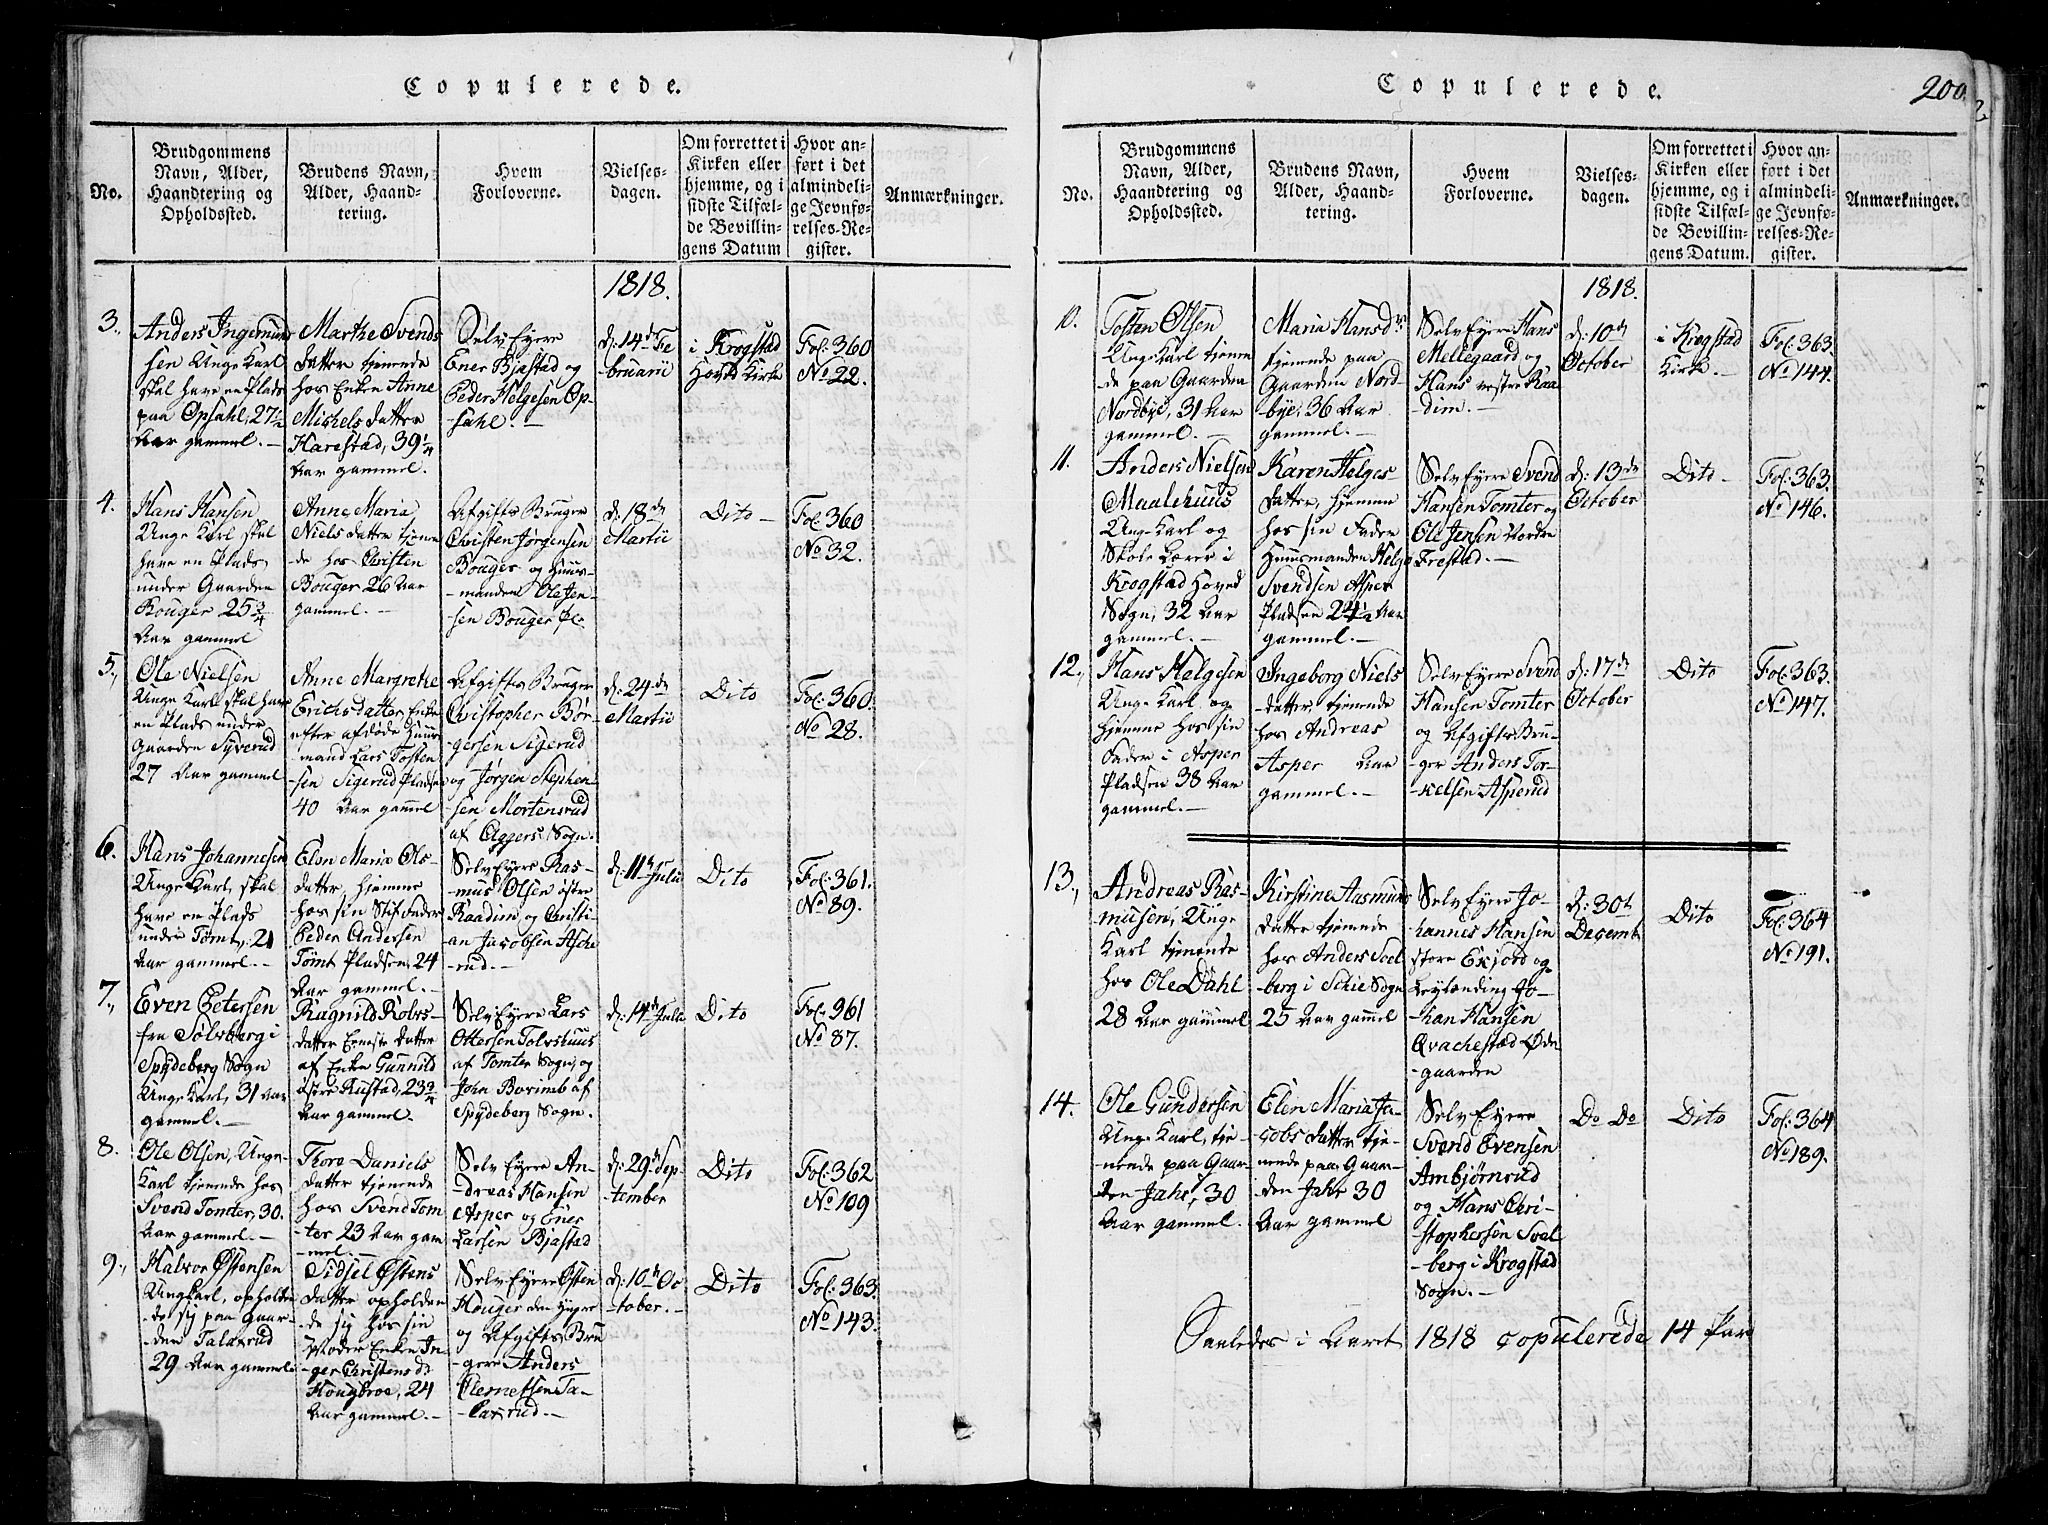 Copulerede.
No.
Brudgommens
Navn, Alder,
Haandtering og
Opholdssted.
Brudens Navn,
Alder, Haand-
tering.
Hvem
Forloverne.
Vielses-
dagen.
Om forrettet i
Kirken eller
hjemme, og i
sidste Tilfæl-
de Bevillin-
gens Datum
Hvor an-
ført i det
almindeli-
ge Jevnfø-
relses-Re-
gister.
Anmærkninger.
1818.
3.,
Anders Ingemund
sen Unge Karl
skal have en Plads
paa Opsahl, 27½
Aar gammel.-
Marthe Svends
datter tjenende
hos Enken Anne
Michels datter
Harestad, 39¼
Aar gammel.
Selv Eyere
Ener Bjastad og
Peder Helgesen Op-
sahl.-
d: 14de Fe
bruarii
i Krogstad
Hoved Kirke
Fol: 360
No 22.
4.
Hans Hansen
Unge Karl skal
have en Plads
under Gaarden
Bouger 25¾
Aar gammel
Anne Maria
Niels datter tjenen
de hos Christen
Bouger 26 Aar
gammel.-
Afgifts Bruger
Christen Jørgensen
Bouger og Huus-
manden Ole Jen-
sen Bouger Pl:
d: 18de
Martii
Dito-
Fol: 360
No 32.
5.,
Ole Nielsen
Unge Karl skal have
en Plads under
Gaarden Syverud
27 Aar gammel
Anne Margrethe
Erichsdatter Enke
efter afdøde Huus
mand Lars Tosten
-sen Sigerud Pladsen
40 Aar gam̄el
Afgifts Bruger
Christopher Bør-
gersen Sigerud
og Jørgen Stephen
sen Mortensrud
af Aggers Sogn.
d: 24de
Martii
Dito
Fol: 360.
No 28.
6.
Hans Johannesen
Unge Karl, skal
have en Plads
under Tømt, 21
Aar gammel.-
Elen Maria Ols-
datter, hjemme
hos sin Stif Fader
Peder Andersen
Tømt Pladsen, 24
Aar gammel.-
Selv Eyere Ras-
-mus Olsen østre
Raadim, og Christi-
an Jacobsen Asche
rud.-
d: 11te Julii
Dito
Fol: 361.
No 89.
7.,
Even Petersen
fra Sølvberg i
Spydeberg Sogn
Unge Karl, 31 Aar
gammel.-
Ragnild Rolvs-
datter Eneste datter
af Enke Gunnild
østre Rustad, 23¾
Aar gammel.
Selv Eyere Lars
Ottersen Tolvshuus
af Tomter Sogn, og
John Borimb af
Spydeberg Sogn.
d: 14de Julii
Dito
Fol: 361
No 87.
8.
Ole Olsen, Unge-
Karl tjenende hos
Svend Tomter, 30.
Aar gammel.-
Thore Daniels
datter tjenende
hos Svend Tom
ter 23 Aar gam
mel.-
Selv Eyere An-
-dreas Hansen
Asper og Ener
Larsen Bjastad
d: 29de Sep
-tember
Dito
Fol: 362
No 109
9.,
Halvor Østensen
Ungkarl, opholden
-de sig paa Gaar-
-den Talaxrud
29 Aar gammel.
Sidsel Østens
datter opholden
de sig hos sin
Moder Enke In-
-ger Christens dr
Hougbroe, 24
Aar gammel.-
Selv Eyere Østen
Houger den yngre
og Afgifts Bru
-gere Anders
Clemetsen Ta-
-laxrud.-
d: 10de Oc
-tober.-
Dito
Fol: 363.
No 143.
Copulerede.
200.
No.
Brudgommens
Navn, Alder,
Haandtering og
Opholdssted.
Brudens Navn,
Alder, Haand-
tering.
Hvem
Forloverne.
Vielses-
dagen.
Om forrettet i
Kirken eller
hjemme, og i
sidste Tilfæl-
de Bevillin-
gens Datum.
Hvor an-
ført i det
almindeli-
ge Jevnfø-
relses-Re-
gister.
Anmærkninger.
1818.
10.
Tosten Olsen
Unge Karl tjenen
de paa Gaarden
Nordbye, 31 Aar
gammel.-
Maria Hansdr
tjenende paa
Gaarden Nord-
bye, 36 Aar
gammel.-
Selv Eyere Hans
Mellegaard og
Hans vestre Raa
dim.-
d: 10de
October
i Krogstad
Kirke.-
Fol: 363.
No 144.
11.
Anders Nielsen
Maalehuus
Unge Karl og
Skole Lærer i
Krogstad Hoved
Sogn, 32 Aar
gammel.-
Karen Helges-
datter, hjemme
hos sin Fader
Huusmanden Helge
Svendsen Asper
Pladsen 24½ Aar
gammel.-
Selv Eyere Svend
Hansen Tomter og
Ole Jensen Nordre
Frestad.-
d: 13de
October
Dito-
Fol: 363.
No 146.
12.,
Hans Helgesen
Unge Karl og
hjemme hos sin
Fader i Asper
Pladsen 38 Aar
gammel.-
Ingeborg Niels
-datter, tjenende
hos Andreas
Asper Aar
gammel.-
Selv Eyere Svend
Hansen Tomter
og Afgifts Bru-
ger Anders Tor-
-kelsen Asperud
d: 17de
October
Dito
Fol: 363.
No 147.
13.,
Andreas Ras-
musen, Unge
Karl tjenende
hos Ole Dahl
28 Aar gammel
Kirstine Asmunds
datter tjenende
hos Anders Soel
berg i Schie Sogn
25 Aar gam̄el
Selv Eyere Jo-
hannes Hansen
store Exjord og
Leylænding Jo-
-han Hansen
Qvachestad Øde
gaarden
d: 30te
Decemb
Dito
Fol: 364
No 191.
14.
Ole Gundersen
Unge Karl, tje-
-nende paa Gaar-
den Jahr, 30
Aar gammel.
Elen Maria Ja-
cobs datter tje-
nende paa Gaar-
den Jahr 30
Aar gammel
Selv Eyere
Svend Evensen
Ambjørnrud
og Hans Chri-
stophersen Soel
-berg i Krogstad
Sogn.-
Do Do
Dito
Fol: 364
No 189.
Saaledes i Aaret 1818 copulerede 14 Par